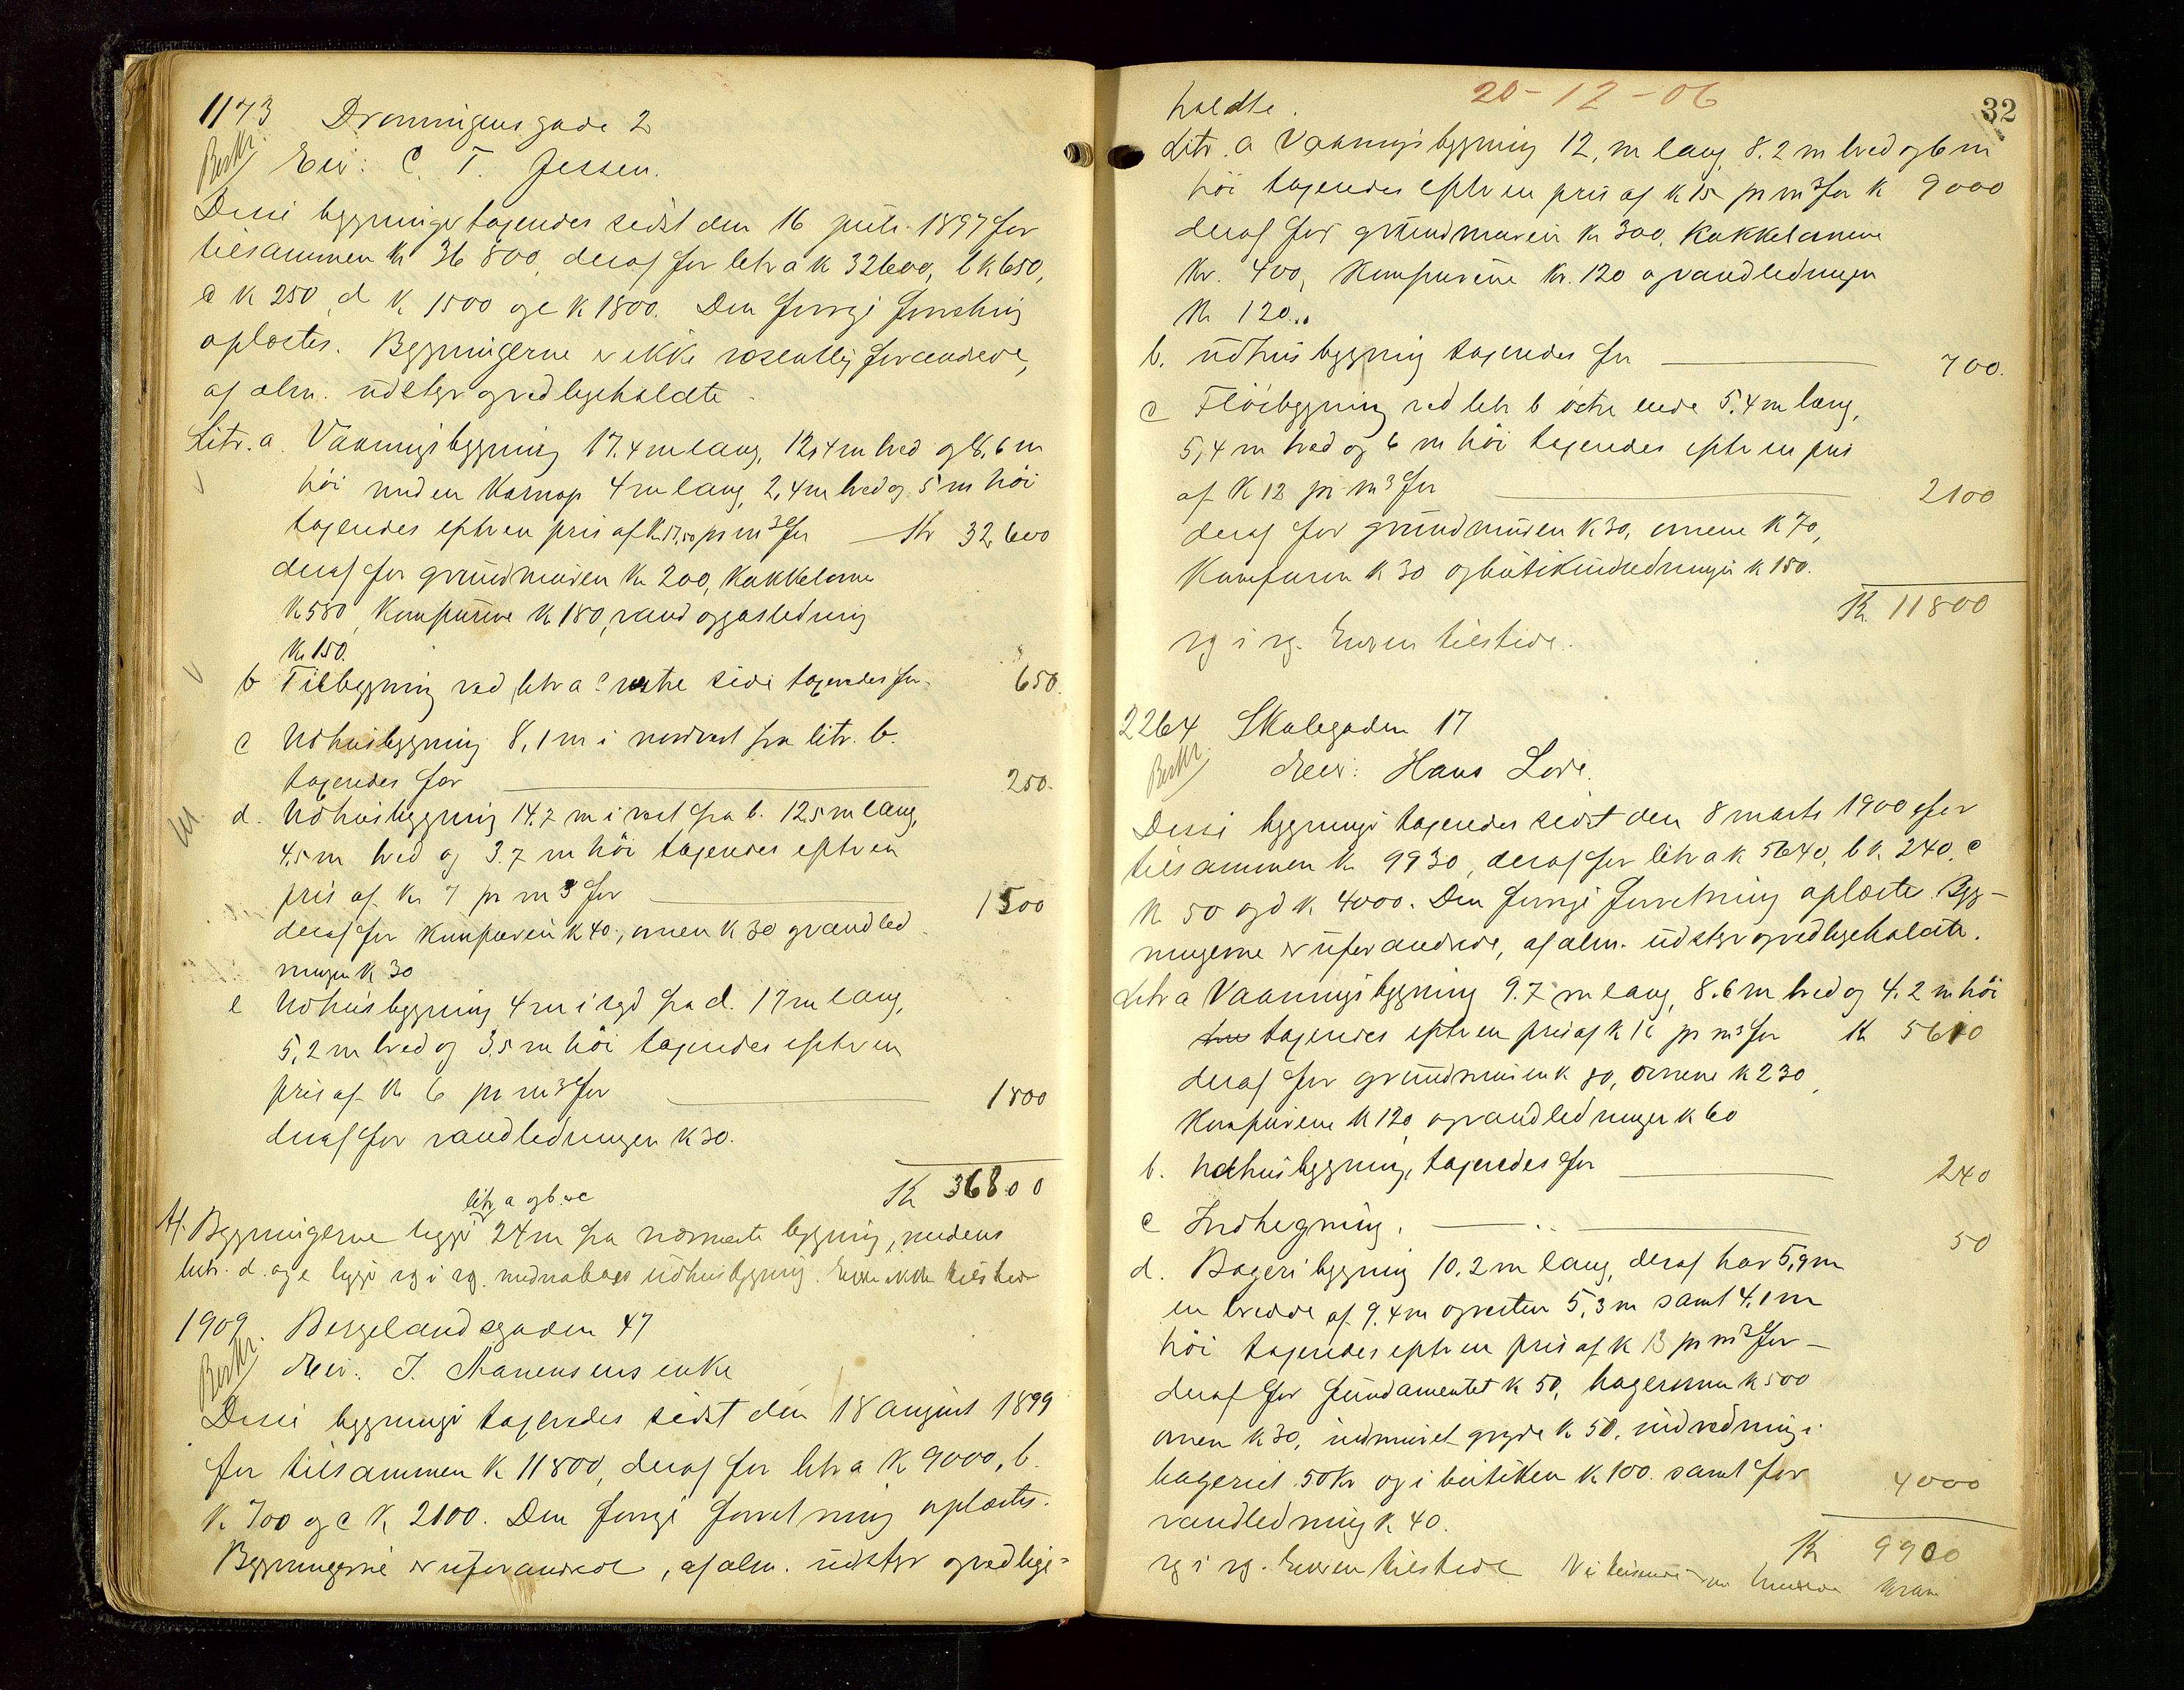 1173 Dronningensgade 2
Beskr.
Eier: C. T. Jessen.
Disse bygninger taxeredes sidst den 16 juli 1897 for
tilsammen kr 36 800, deraf for litr a k 32600, b k 650,
c k 250, d k 1500 og e k 1800. Den forrige forretning
oplæstes. Bygningerne er ikke væsentlig forandrede,
af alm. udstyr og vedligeholdte.
Litr. a. Vaaningsbygning 17.4 m lang, 12,4 m bred og 8,6 m
höi med en karnap 4 m lang, 2,4 m bred og 5 m höi
taxeredes efter en pris af k 17,50 pr m³ for — Kr 32,600
deraf for grundmuren kr 200, kakkelovne
k 580, komfurene kr 180, vand og gasledning
kr 150.
b Tilbygning ved litr a's vestre side taxeredes for 650.
c Udhusbygning 8,1 m i nordvest fra litr. b.
taxeredes for 250.
d. Udhusbygning 14.7 m i vest fra b. 12,5 m lang,
4,5 m bred og 3.7 m höi taxeredes efter en
pris af kr 7 pr m³ for 1500
deraf for komfuren k 40, ovnen k 30 og vandled
ningen k 30
e Udhusbygning 4 m i syd fra d. 17 m lang,
5,2 m bred og 3,5 m höi taxeredes efter en
pris af kr 6 pr m³ for 1800
deraf for vandledningen k 30.
Kr 36800
litr a og b og c
Bygningerne ligge 24 m fra nærmeste bygning, medens
litr. d. og e ligge ryg i ryg med naboens udhusbygning. Eieren ikke tilstede
1909. Bergelandsgaden 47
Beskr.
Eier: T. Mauensens enke
Disse bygninger taxeredes sidst den 18 august 1899
for tilsammen k 11800, deraf for litr a k 9000, b.
k. 700 og c k. 2100. Den forrige forretning oplæstes.
Bygningerne er uforandrede, af alm. udstyr og vedlige-
20-12-06
32
holdte.
Litr. a Vaaningsbygning 12, m lang, 8.2 m bred og 6 m
höi taxeredes efter en pris af k 15 pr m³ for k 9000
deraf for grundmuren kr 300, kakkelovnene
kr. 400, komfurene kr. 120 og vandledningen
kr 120.
b. udhusbygning taxeredes for 700.
c Flöibygning ved litr b östre ende 5,4 m lang,
5,4 m bred og 6 m höi taxeredes efter en pris
af k 12 pr m³ for 2100
deraf for grundmuren k 30, ovnene k 70,
komfuren k 30 og butikindredningen k 150.
Kr. 11800
ryg i ryg. Eieren tilstede.
2264 Skolegaden 17
Beskr.
Eier: Hans Lode.
Disse bygninger taxeredes sidst den 8 marts 1900 for
tilsammen kr 9930, deraf for litr a k 5640, b k. 240, c
k 50 og d k 4000. Den forrige forretning oplæstes. Byg-
ningerne er uforandrede, af alm. udstyr og vedligeholdte.
Litr a Vaaningsbygning 9.7 m lang, 8.6 m bred og 4.2 m höi
taxeredes efter en pris af k 16 pr m³ for k 5610
deraf for grundmuren k 80, ovnene k 230,
komfurene k 120 og vandledningen k 60
b. Udhusbygning, taxeredes for 240
c Indhegning. 50
d. Bageribygning 10.2 m lang, deraf har 5,9 m
en bredde af 9.4 m og resten 5,3 m samt 4,1 m
höi taxeredes efter en pris af k 13 pr m³ for —
deraf for fundamentet k 50, bagerovnen k 500
ovnen k 30, indmuret gryde k 50, indredning i
bageriet 50 kr og i butikken k 100. samt for 4000
vandledning k 40.
Kr 9900
ryg i ryg. Eieren tilstede Ni tusinde ni hundrede kroner